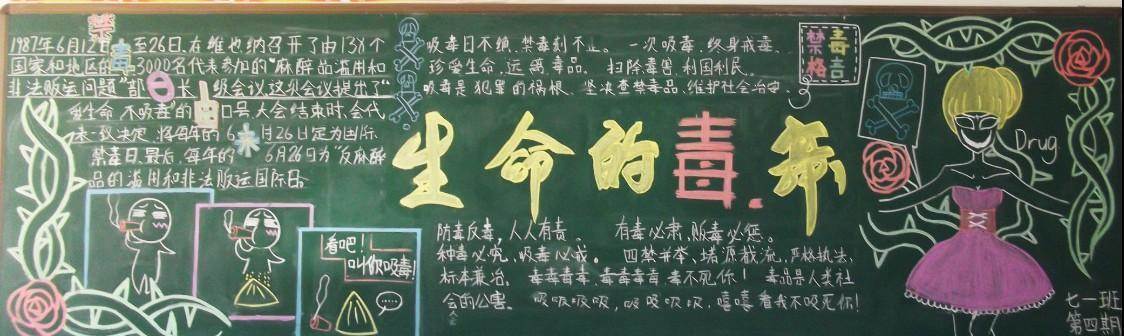 禁毒日的由来
1987年6月12日至26日,在维也纳召开了由138个
国家和地区的3000名代表参加的“麻醉品滥用和
非法贩运问题”部长级会议,这次会议提出了“
爱生命 不吸毒”的口号,大会结束时,会代
表一致决定,将每年的6月26日定为国际
禁毒日,最后,每年的6月26日为“反麻醉
品的滥用和非法贩运国际日。
吸毒日不绝,禁毒刻不止。 一次吸毒,终身戒毒.
珍爱生命,远离毒品。 扫除毒害,利国利民。
吸毒是犯罪的祸根、坚决查禁毒品,维护社会治安。
禁毒
格言
生命的毒.
Drug
防毒反毒,人人有责、 有毒必肃,贩毒必惩。
种毒必究,吸毒必戒。 四禁并举、堵源截流,严格执法,
标本兼治。 毒毒毒毒、毒毒毒毒,毒不死你! 毒品是人类社
会的公害 吸吸吸吸,吸吸吸吸,嘻嘻看我不吸死你!
看吧!
叫你吸毒!
七一班
第四期